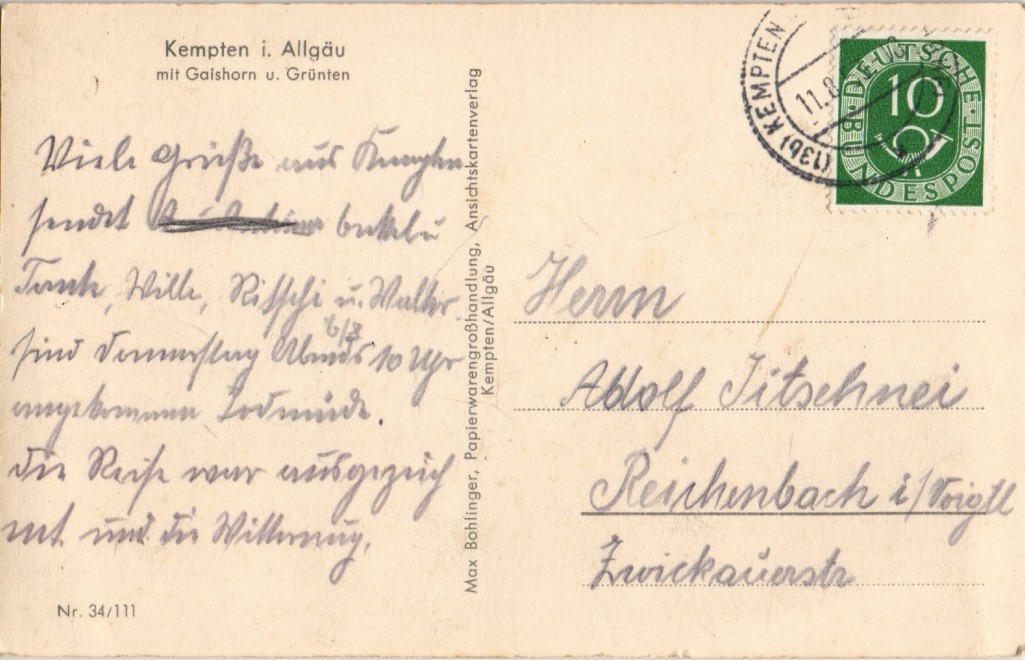 Kempten i. Allgäu
mit Gaishorn u. Grünten
Viele Grüße aus Kempten
sendet
Tante, Wille, u. Walter.
sind Donnerstag Abends 10 Uhr
angekommen Todmüde.
die Reise war ausgezeich
net und die Witterung.
Nr. 34/111
Max Bohlinger, Papierwarengroßhandlung, Ansichtskartenverlag
Kempten/Allgäu
(13b) KEMPTEN
11.8.
DEUTSCHE BUNDESPOST
10
Herrn
Adolf Jitschnei
Reichenbach i/Voigtl
Zwickauerstr